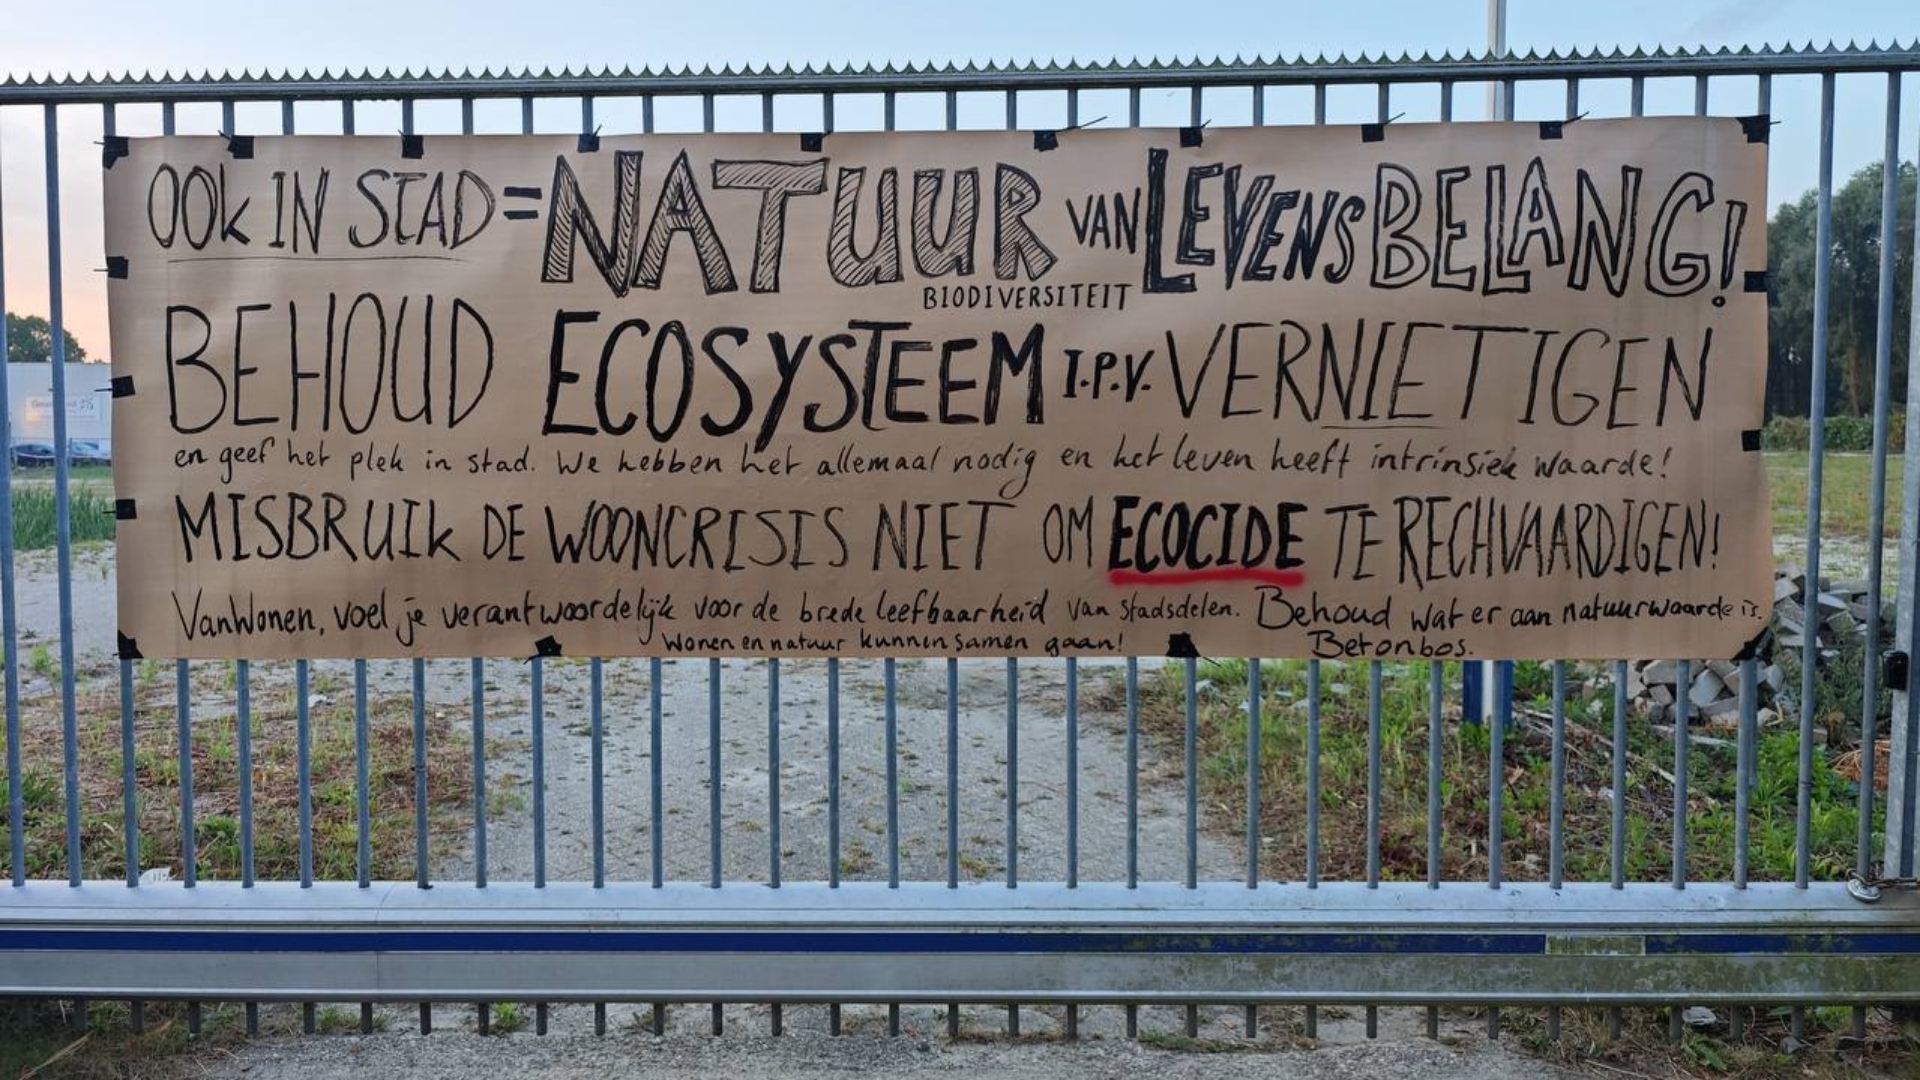 OOK IN STAD = NATUUR VAN LEVENSBELANG!
BIODIVERSITEIT
BEHOUD ECOSYSTEEM I.P.V. VERNIETIGEN
en geef het plek in stad. We hebben het allemaal nodig en het leven heeft intrinsiek waarde!
MISBRUIK DE WOONCRISIS NIET OM ECOCIDE TE RECHVAARDIGEN!
VanWonen, voel je verantwoordelijk voor de brede leefbaarheid van stadsdelen. Behoud wat er aan natuurwaarde is.
Wonen en natuur kunnen samen gaan! Betonbos.
HERAS